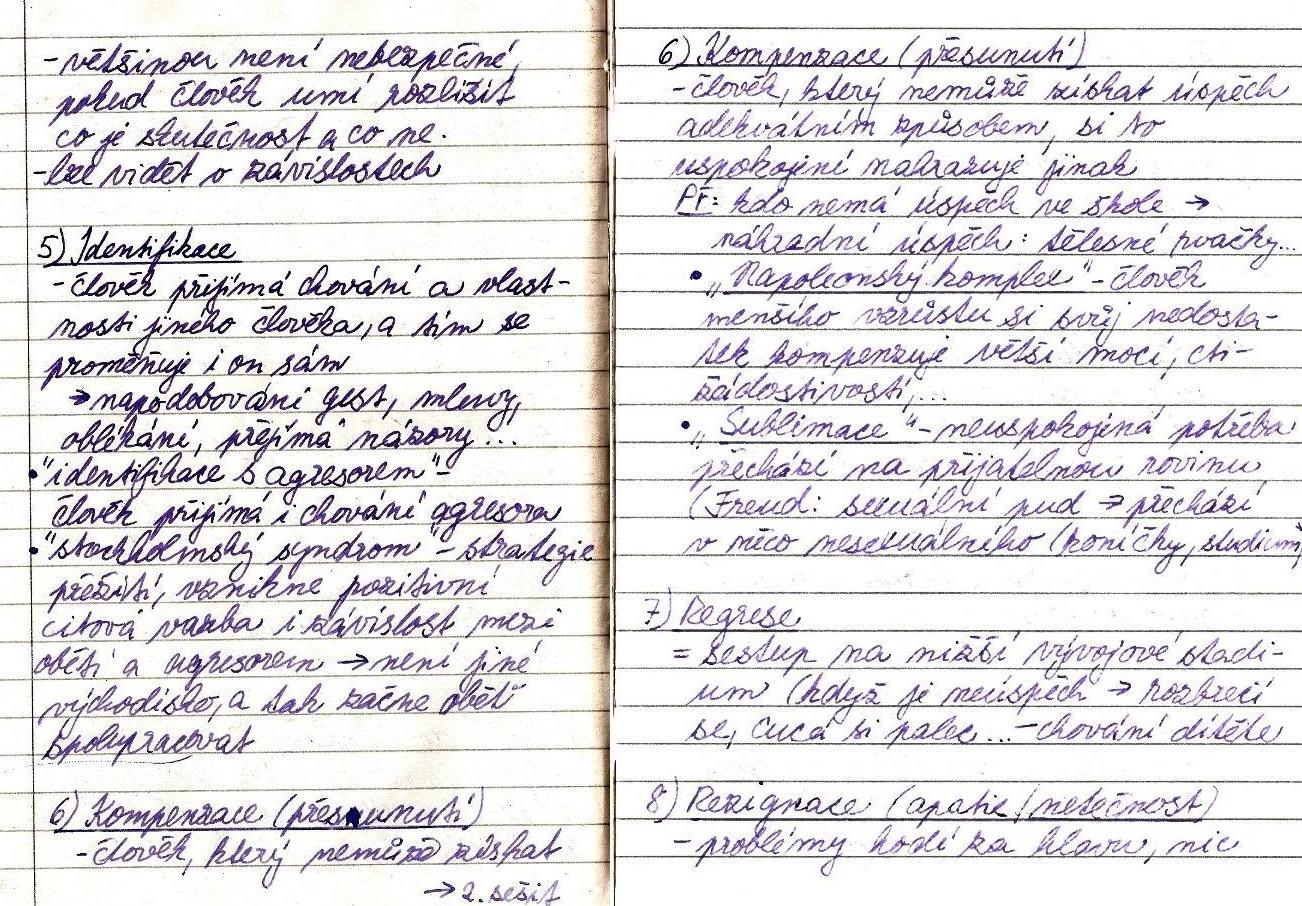 - většinou není nebezpečné,
pokud člověk umí rozlišit
co je skutečnost a co ne.
- lze vidět v závislostech
5) Identifikace
- člověk přijímá chování a vlast-
nosti jiného člověka, a tím se
proměňuje i on sám
→ napodobování gest, mluvy,
oblékání, přejímá názory ...
• "identifikace s agresorem" -
člověk přijímá i chování agresora
• "stockholmský syndrom" - strategie
přežití, vznikne pozitivní
citová vazba i závislost mezi
obětí a agresorem → není jiné
východisko, a tak začne oběť
spolupracovat
6) Kompenzace (přesunutí)
- člověk, který nemůže získat
→ 2. sešit
6) Kompenzace (přesunutí)
- člověk, který nemůže získat úspěch
adekvátním způsobem, si to
uspokojení nahrazuje jinak
Př: kdo nemá úspěch ve škole →
náhradní úspěch: tělesné rvačky...
• „Napoleonský komplex" - člověk
menšího vzrůstu si svůj nedosta-
tek kompenzuje větší mocí, cti-
žádostivostí,...
• „Sublimace" - neuspokojená potřeba
přechází na přijatelnou rovinu
(Freud: sexuální pud → přechází
v něco nesexuálního (koníčky, studium)
7) Regrese
= sestup na nižší vývojové stadi-
um (když je neúspěch → rozbrečí
se, cucá si palec ... - chování dítěte
8) Rezignace (apatie/netečnost)
- problémy hodí za hlavu, nic